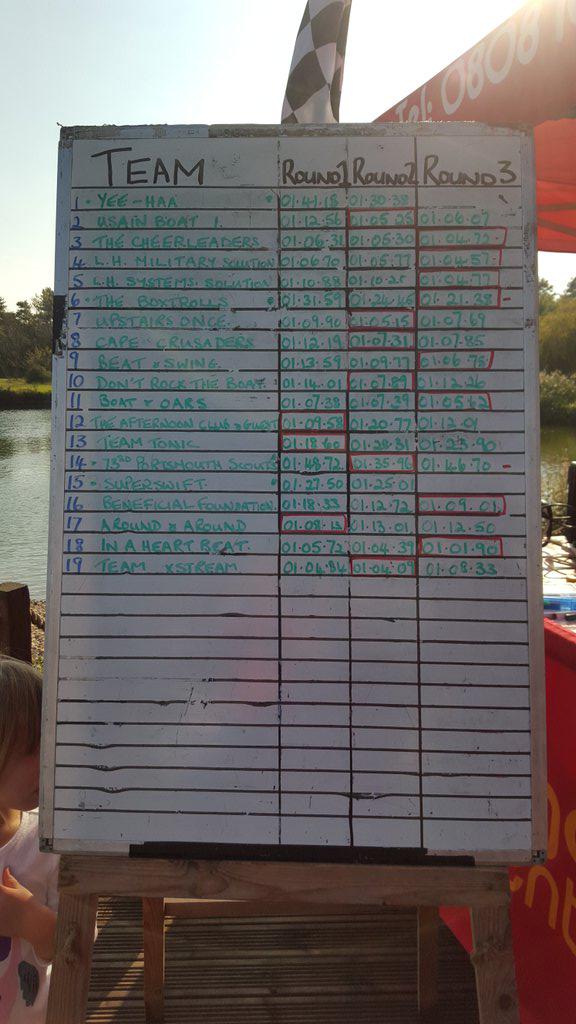 Tel: 0808 10
TEAM ROUND1 ROUND2 ROUND 3
1 · YEE-HAA 01.41.18 01.30.38
2 USAIN BOAT 1. 01.12.56 01.05.25 01.06.07
3 THE CHEERLEADERS 01.06.31 01.05.30 01.04.72
4 L.H. MILITARY SOLUTION 01.06.70 01.05.77 01.04.57
5 L.H. SYSTEMS. SOLUTION 01.10.88 01.10.25 01.04.77
6 · THE BOXTROLLS 01.31.59 01.24.45 01.21.38 -
7 UPSTAIRS ONCE. 01.09.90 01.05.15 01.07.69
8 CAPE CRUSADERS 01.12.19 01.07.31 01.07.85
9 BEAT & SWING. 01.13.59 01.09.77 01.06.75
10 DON'T ROCK THE BOAT 01.14.01 01.07.89 01.12.26
11 BOAT & OARS 01.07.38 01.07.39 01.05.62
12 THE AFTERNOON CLUB & GUEST 01.09.58 01.20.77 01.12.01
13 TEAM TONIC 01.18.60 01.28.31 01.23.90
14 · 73RD PORTSMOUTH SCOUTS 01.48.72 01.35.96 01.46.70 -
15 · SUPERSWIFT 01.27.50 01.25.01
16 BENEFICIAL FOUNDATION. 01.18.33 01.12.72 01.09.01
17 AROUND & AROUND 01.08.15 01.13.01 01.12.50
18 IN A HEART BEAT. 01.05.72 01.04.37 01.01.90
19 TEAM XSTREAM 01.04.84 01.04.09 01.08.33